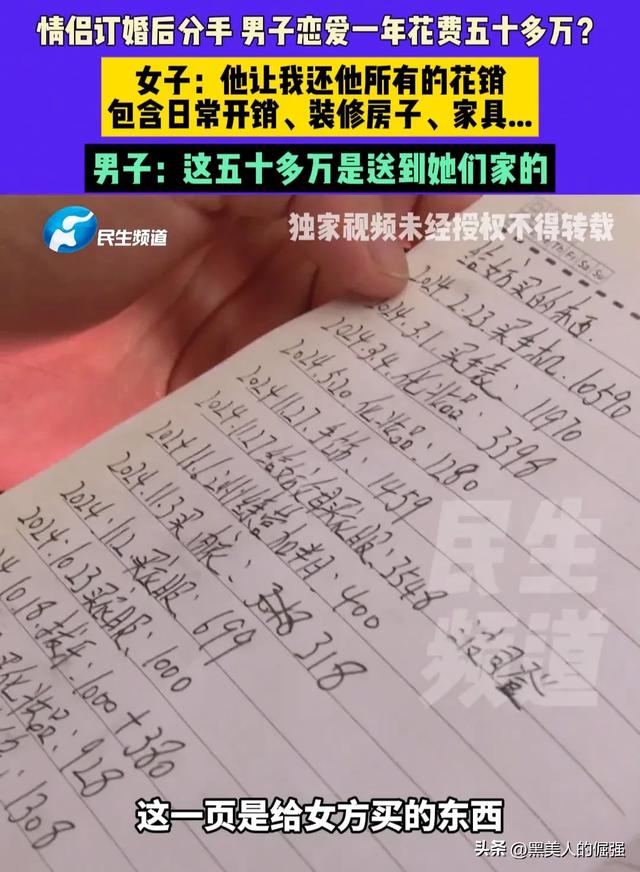 情侣订婚后分手 男子恋爱一年花费五十多万？
女子：他让我还他所有的花销
包含日常开销、装修房子、家具...
男子：这五十多万是送到她们家的
民生频道
独家视频未经授权不得转载
Fr Sa Su
给女方买的东西
2024.2.23 买手机：10590
2024.3.1 买手表：11970
2024.3.4 化妆品：3398
2024.5.20 化妆品：1280
2024.11.27 手饰：1459
2024.11.27 给 买衣服：3548
2024.11.6 加油 400
2024.11.3 买衣服：318
2024.11.2 买衣服：699
2024.10.23 买衣服：1000
10.18 1000+380
化妆品：928
1308
民生
频道
这一页是给女方买的东西
头条 @黑美人的倔强